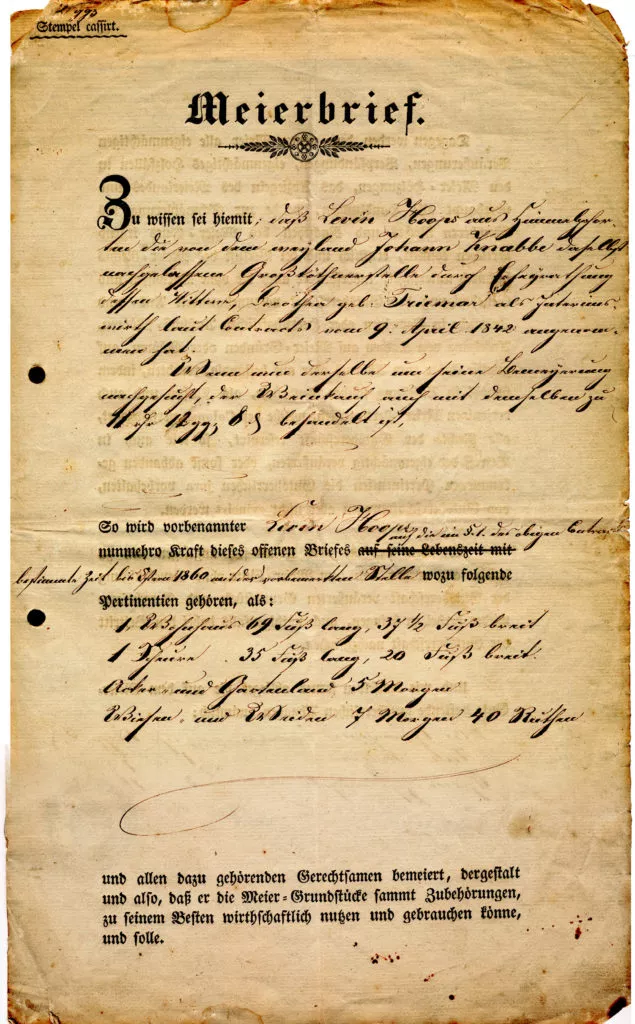 Stempel cassirt.
Meierbrief.
Zu wissen sei hiemit: daß Levin Hoops aus Himmelpfor-
ten die von dem weyland Johann Knabbe daselbst
nachgelassene Großköthnerstelle durch Ehegrathung
dessen Wittwe, Dorothea geb. Triemar als Interims-
wirth laut Contracts vom 9. April 1842 angenom-
men hat.
Wenn nun derselbe um seine Bemeyerung
nachgesucht, der Weinkauf auch mit demselben zu
12 gg 8 behandelt ist,
So wird vorbenannter Levin Hoops auf die im §.1. des obigen Contracts
nunmehro Kraft dieses offenen Briefes auf seine Lebenszeit mit
bestimmte Zeit bis Ostern 1860 mit der vorbenannten Stelle wozu folgende
Pertinentien gehören, als:
1, Wohnhaus 69 Fuß lang, 37 1/2 Fuß breit
1 Scheure 35 Fuß lang, 20 Fuß breit.
Acker- und Gartenland 5 Morgen
Wiesen- und Weiden 7 Morgen 40 Ruthen
und allen dazu gehörenden Gerechtsamen bemeiert, dergestalt
und also, daß er die Meier-Grundstücke sammt Zubehörungen,
zu seinem Besten wirthschaftlich nutzen und gebrauchen könne,
und solle.